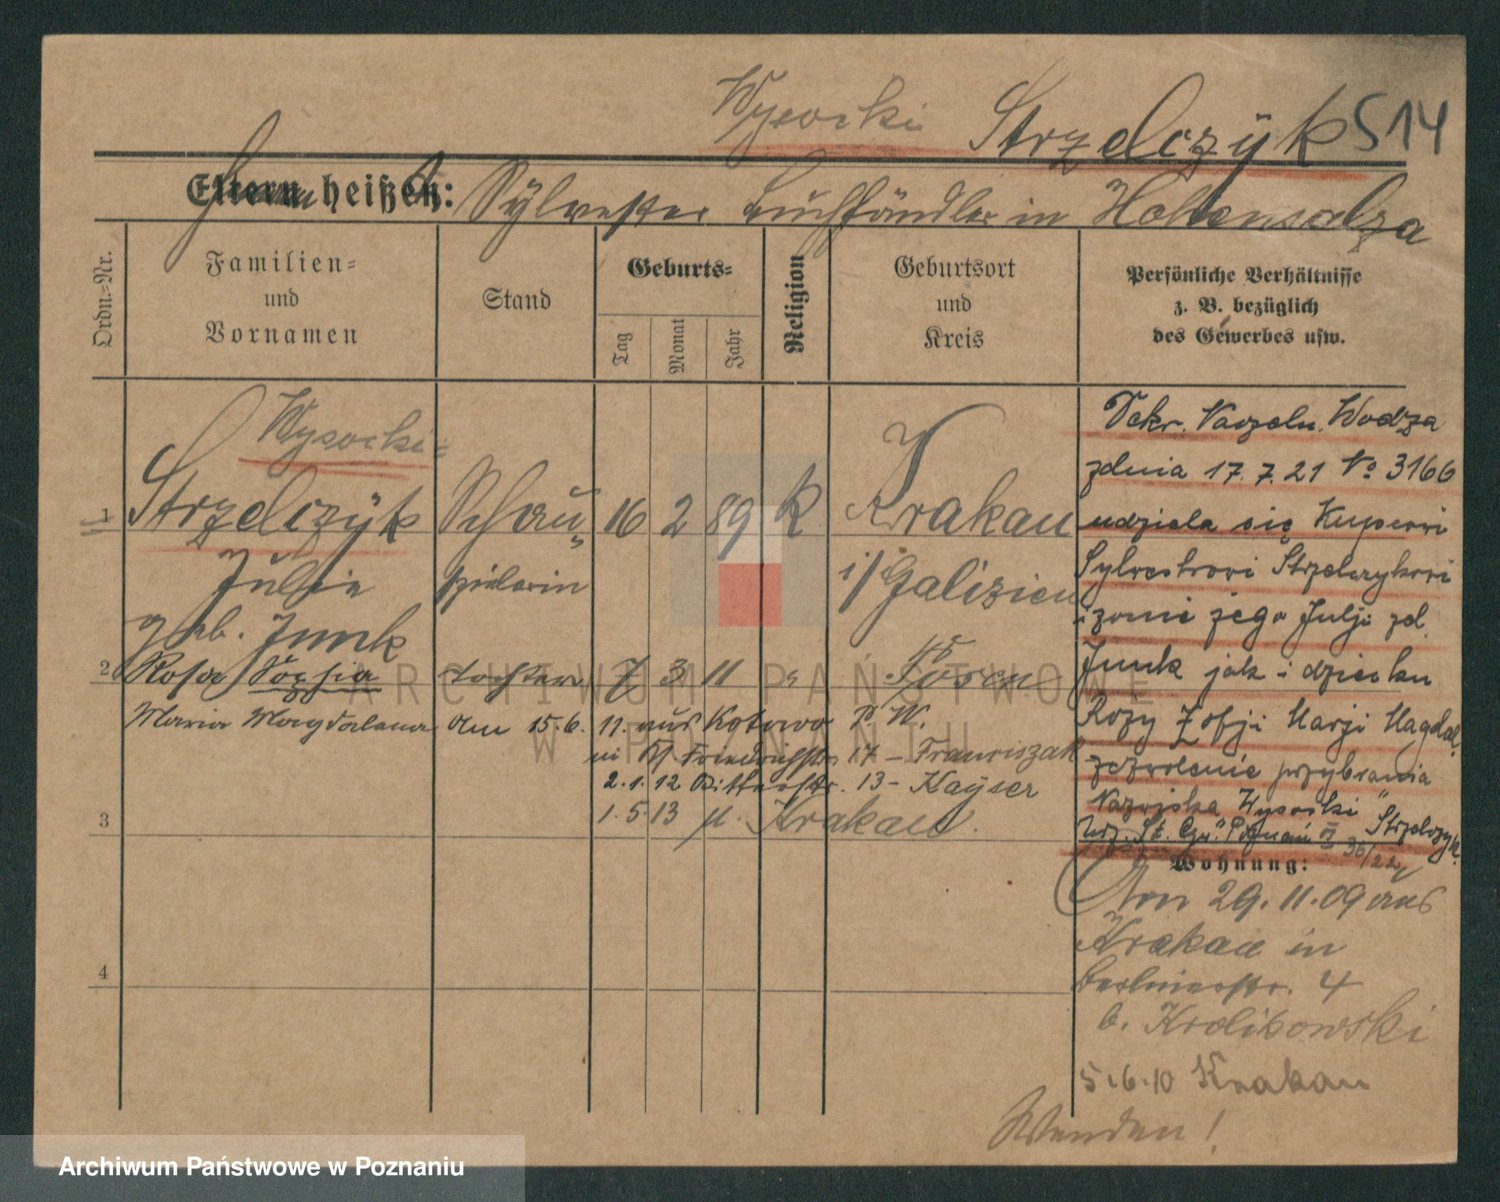 Wysocki Strzelczÿk 514
Eltern heißen: Sÿlvester Buchhändler in Hohensalza
Ordn.-Nr.
Familien- und Vornamen
Stand
Geburts-
Tag
Monat
Jahr
Religion
Geburtsort und Kreis
Persönliche Verhältnisse
z. B. bezüglich
des Gewerbes usw.
Wysocki-
1 Strzelczÿk Schau- 16 2 89 k Krakau
Julie spielerin i/Galizien
geb. Junk
2 Rosa Sophia Tochter 7 3 11 " Posen
Maria Magdalena am 15.6. 11. aus Kotowo P W.
in Friedrichstr. 17 - Franciszak
2.1.12 Ritterstr. 13 - Kayser
3 1.5.13 n. Krakau.
4
Dekr. Naczeln. Wodza
z dnia 17.7.21 No 3166
udziela się Kupcowi
Sylvestrowi Strzelczykowi
i żonie jego Julji zd.
Junk jak i dziecku
Rozy Zofji Marji Magdal.
zezwolenie przybrania
Nazwiska Wysocki "Strzelczyk"
Urz. St. Cyw. Poznań II 36/22
Wohnung:
Von 29.11.09 aus
Krakau in
Berlinerstr. 4
b. Krolikowski
5.6.10 Krakau
Wenden!
ARCHIWUM PAŃSTWOWE
W POZNANIU
Archiwum Państwowe w Poznaniu